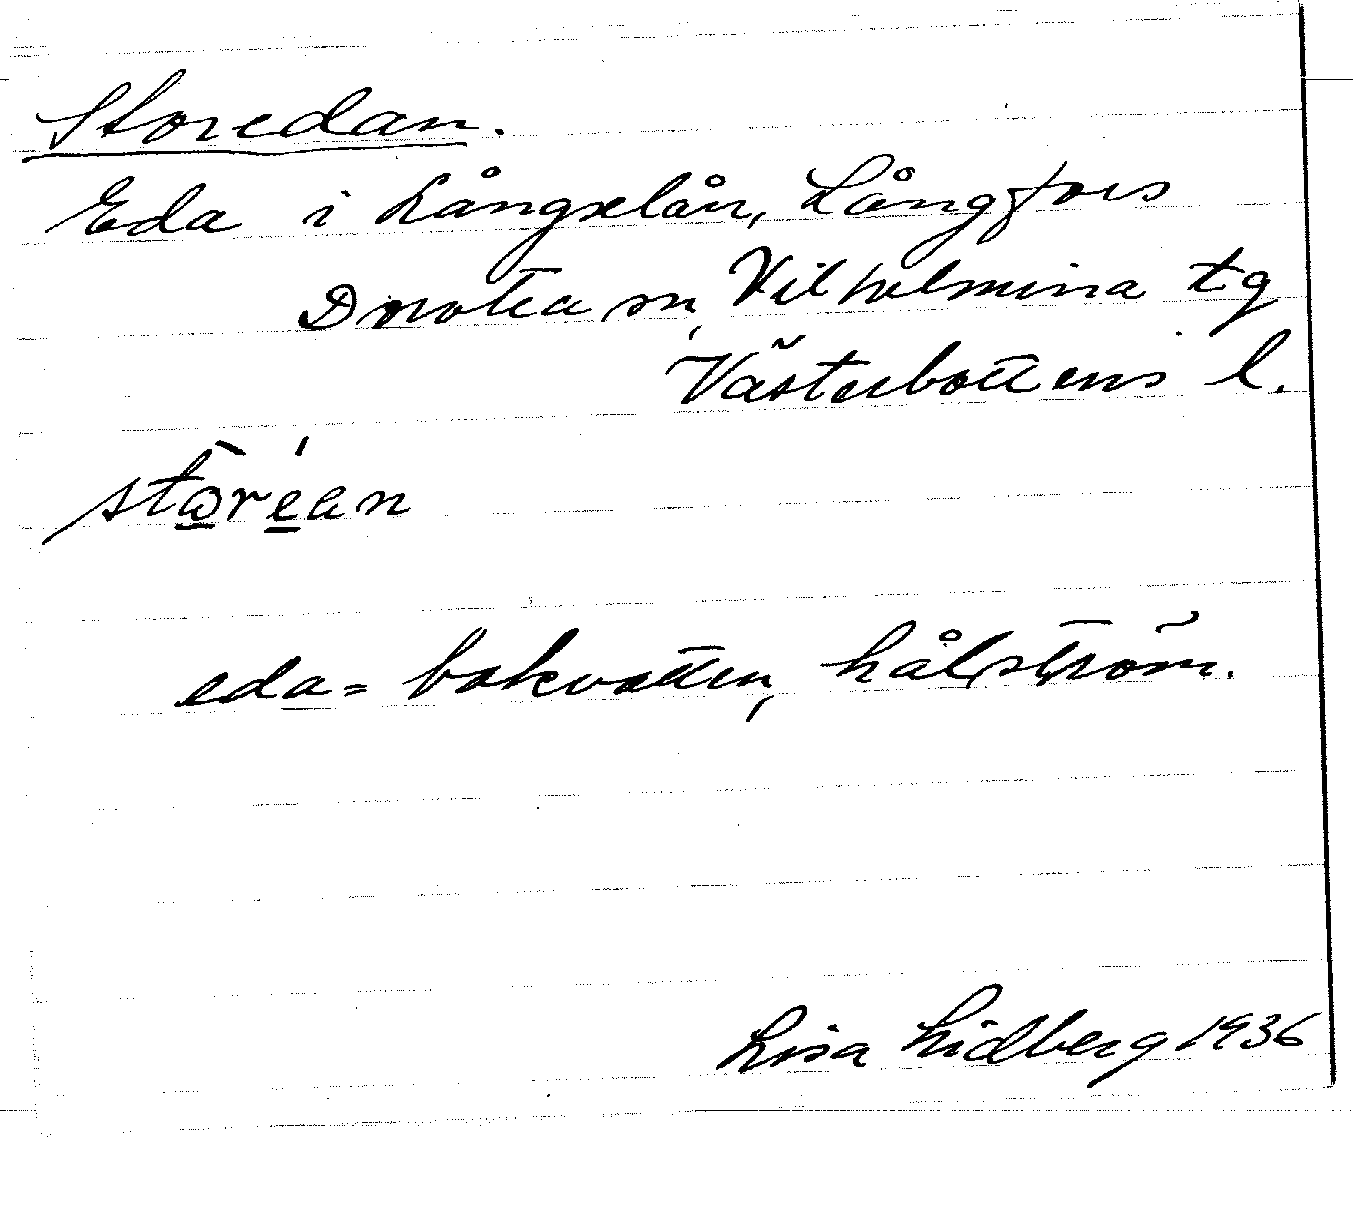 Storedan.
Eda i Långselån, Långfors
Dorotea sn, Vilhelmina tg
Västerbottens l.
eda = bakvatten, hålström.
Lisa Lidberg 1936